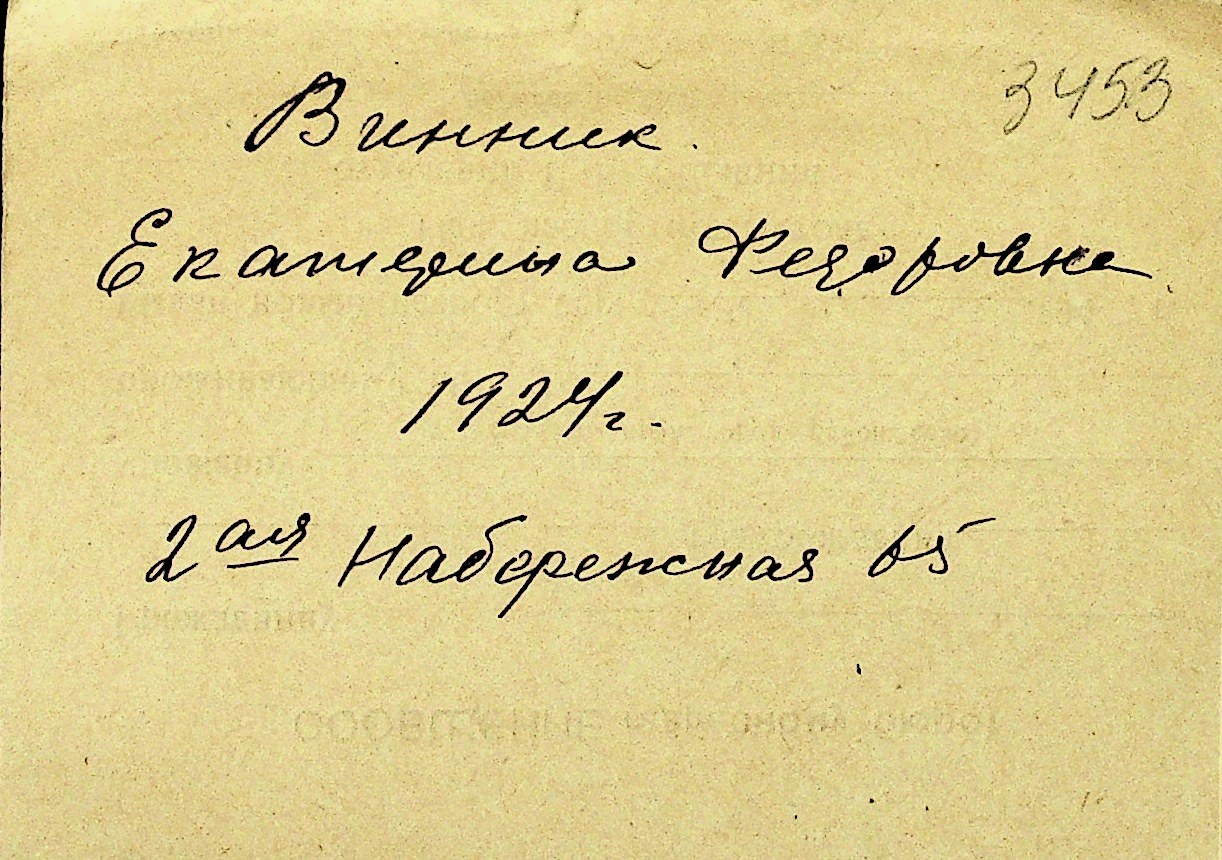 3453
Винник.
Екатерина Федоровна
1924г.
2ая Набережная 65